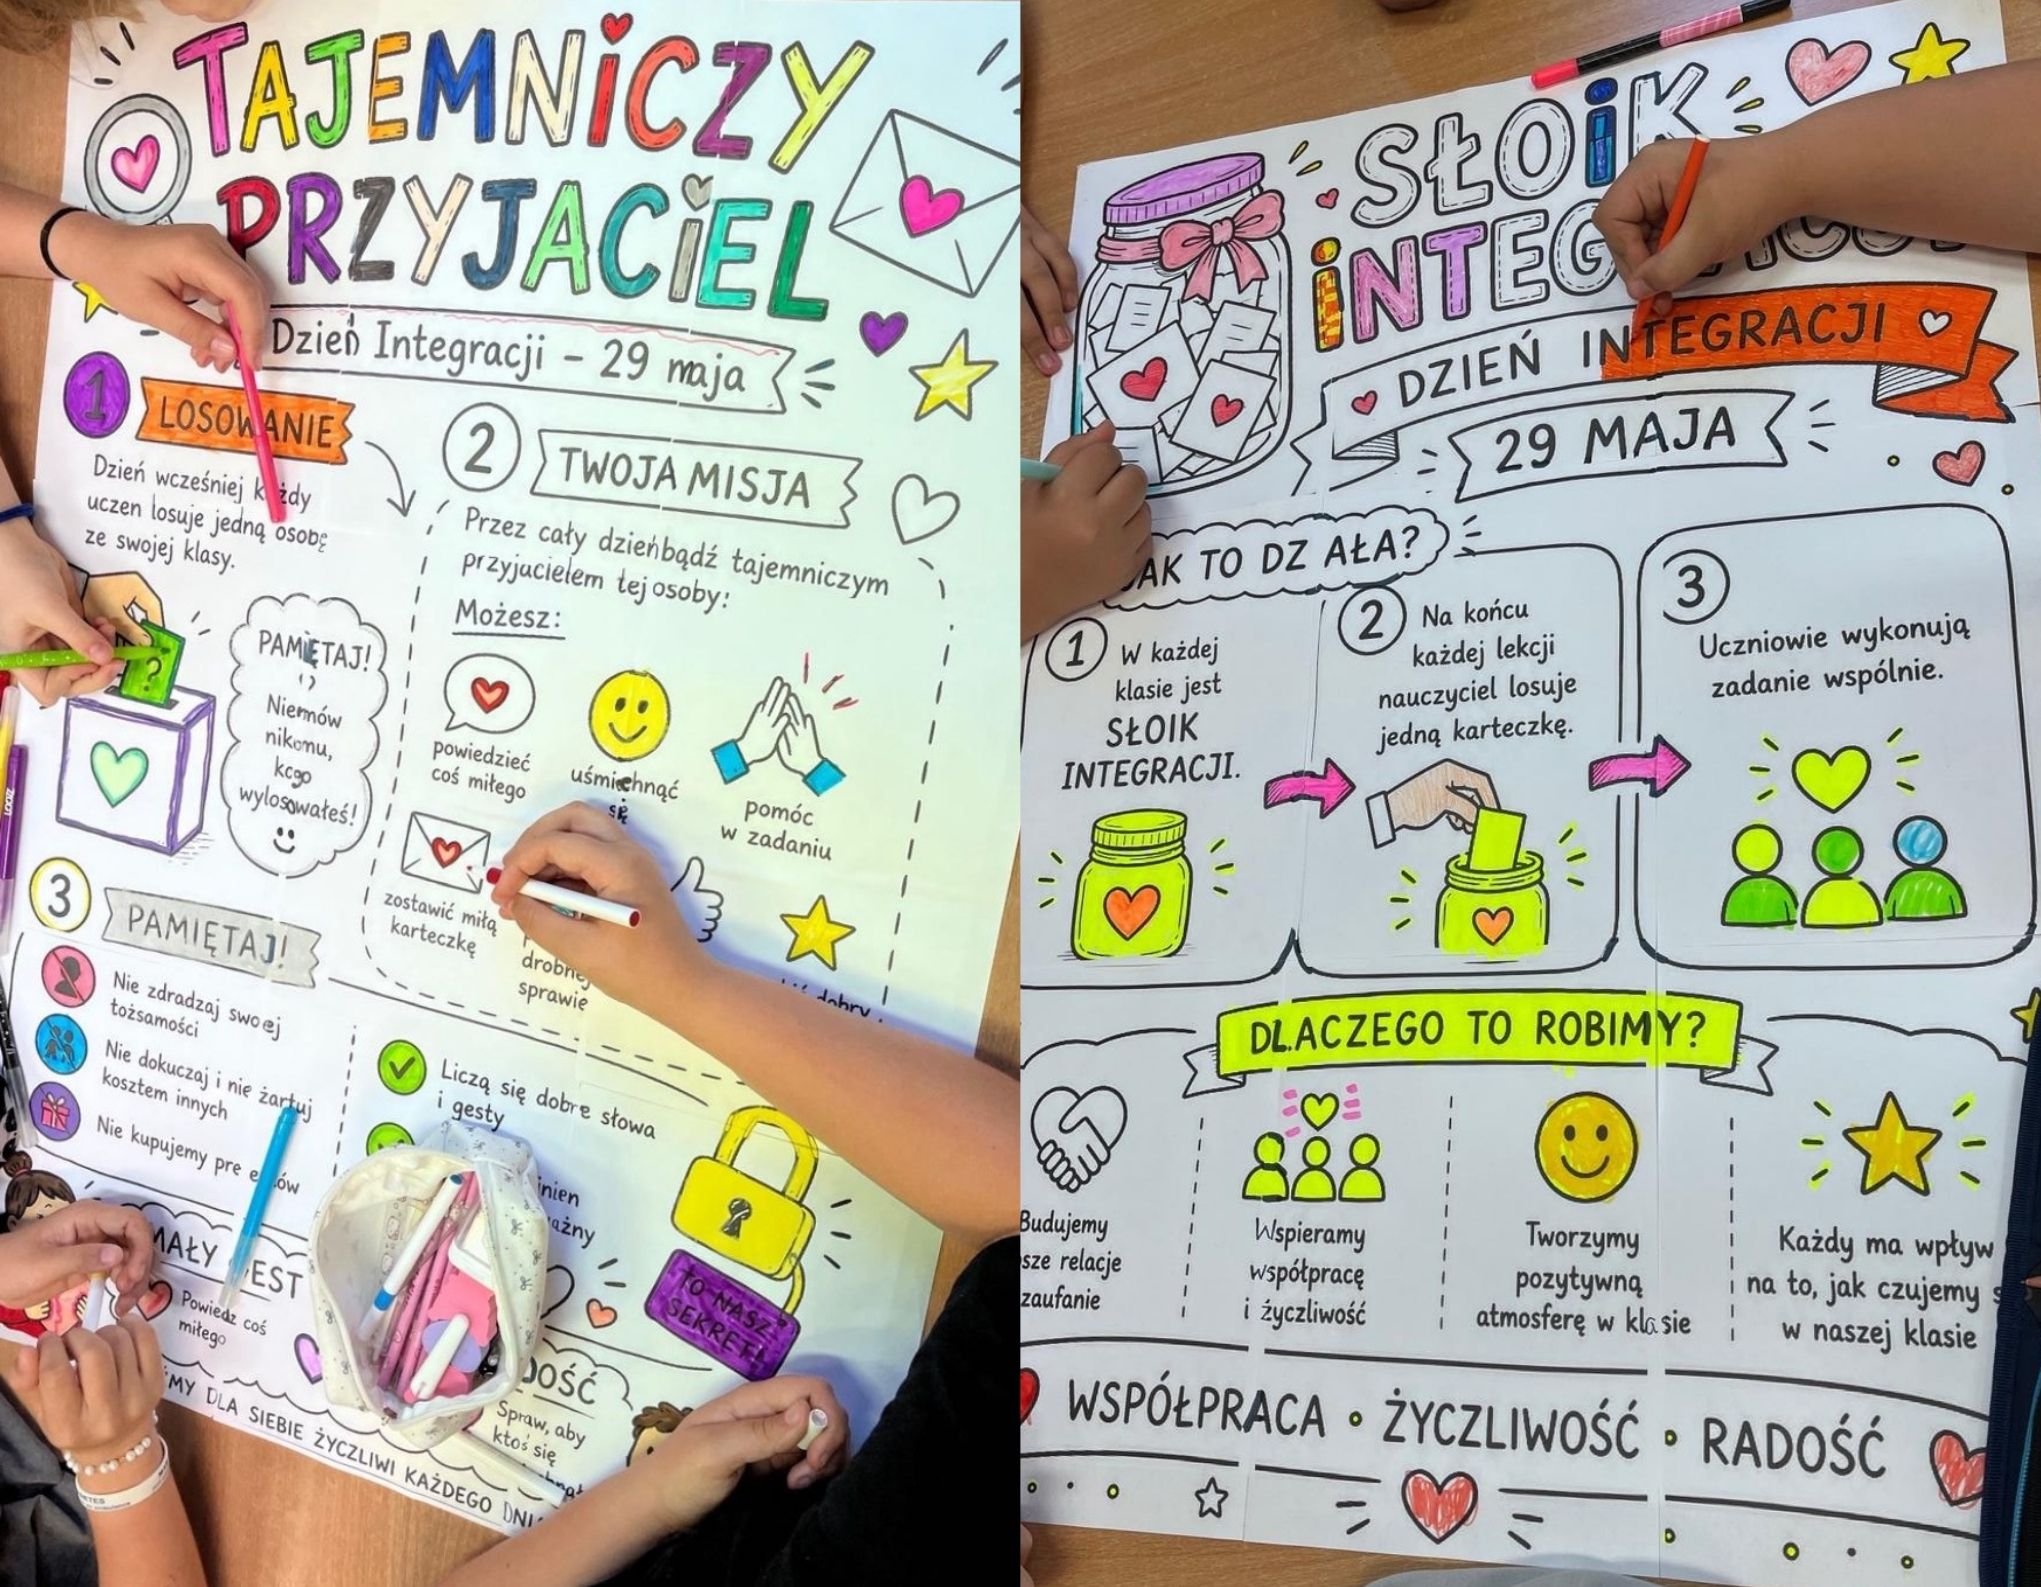 TAJEMNiCZY
PRZYJACiEL
Dzień Integracji – 29 maja
1
LOSOWANIE
Dzień wcześniej
uczen losuje jedną osobę
ze swojej klasy.
?
PAMIĘTAJ!
Nie mów
nikomu,
kogo
wylosowałeś!
2
TWOJA MISJA
Przez cały dzień bądź tajemniczym
przyjucielem tej osoby:
Możesz:
powiedzieć
coś miłego
uśmiechnąć
się
pomóc
w zadaniu
zostawić miłą
karteczkę
sprawie
3
PAMIĘTAJ!
Nie zdradzaj swoej
tożsamości
Nie dokuczaj i nie żartuj
kosztem innych
Nie kupujemy
Liczą się dobre słowa
i gesty
TO NASZ
SEKRET!
MAŁY
Powiedz coś
miłego
Spraw, aby
ktoś się
DLA SIEBIE ŻYCZLIWI KAŻDEGO
SŁOiK
DZIEŃ INTEGRACJI
29 MAJA
JAK TO DZ AŁA?
1
W każdej
klasie jest
SŁOIK
INTEGRACJI.
2
Na końcu
każdej lekcji
nauczyciel losuje
jedną karteczkę.
3
Uczniowie wykonują
zadanie wspólnie.
DLACZEGO TO ROBIMY?
Budujemy
relacje
zaufanie
Wspieramy
współpracę
i życzliwość
Tworzymy
pozytywną
atmosferę w klasie
Każdy ma wpływ
na to, jak czujemy
w naszej klasie
WSPÓŁPRACA • ŻYCZLIWOŚĆ • RADOŚĆ